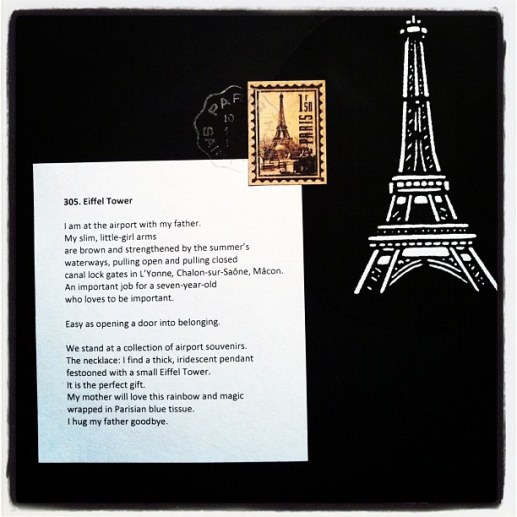 PAR
10
1F50
PARIS
305. Eiffel Tower
I am at the airport with my father.
My slim, little-girl arms
are brown and strengthened by the summer's
waterways, pulling open and pulling closed
canal lock gates in L'Yonne, Chalon-sur-Saône, Mâcon.
An important job for a seven-year-old
who loves to be important.
Easy as opening a door into belonging.
We stand at a collection of airport souvenirs.
The necklace: I find a thick, iridescent pendant
festooned with a small Eiffel Tower.
It is the perfect gift.
My mother will love this rainbow and magic
wrapped in Parisian blue tissue.
I hug my father goodbye.